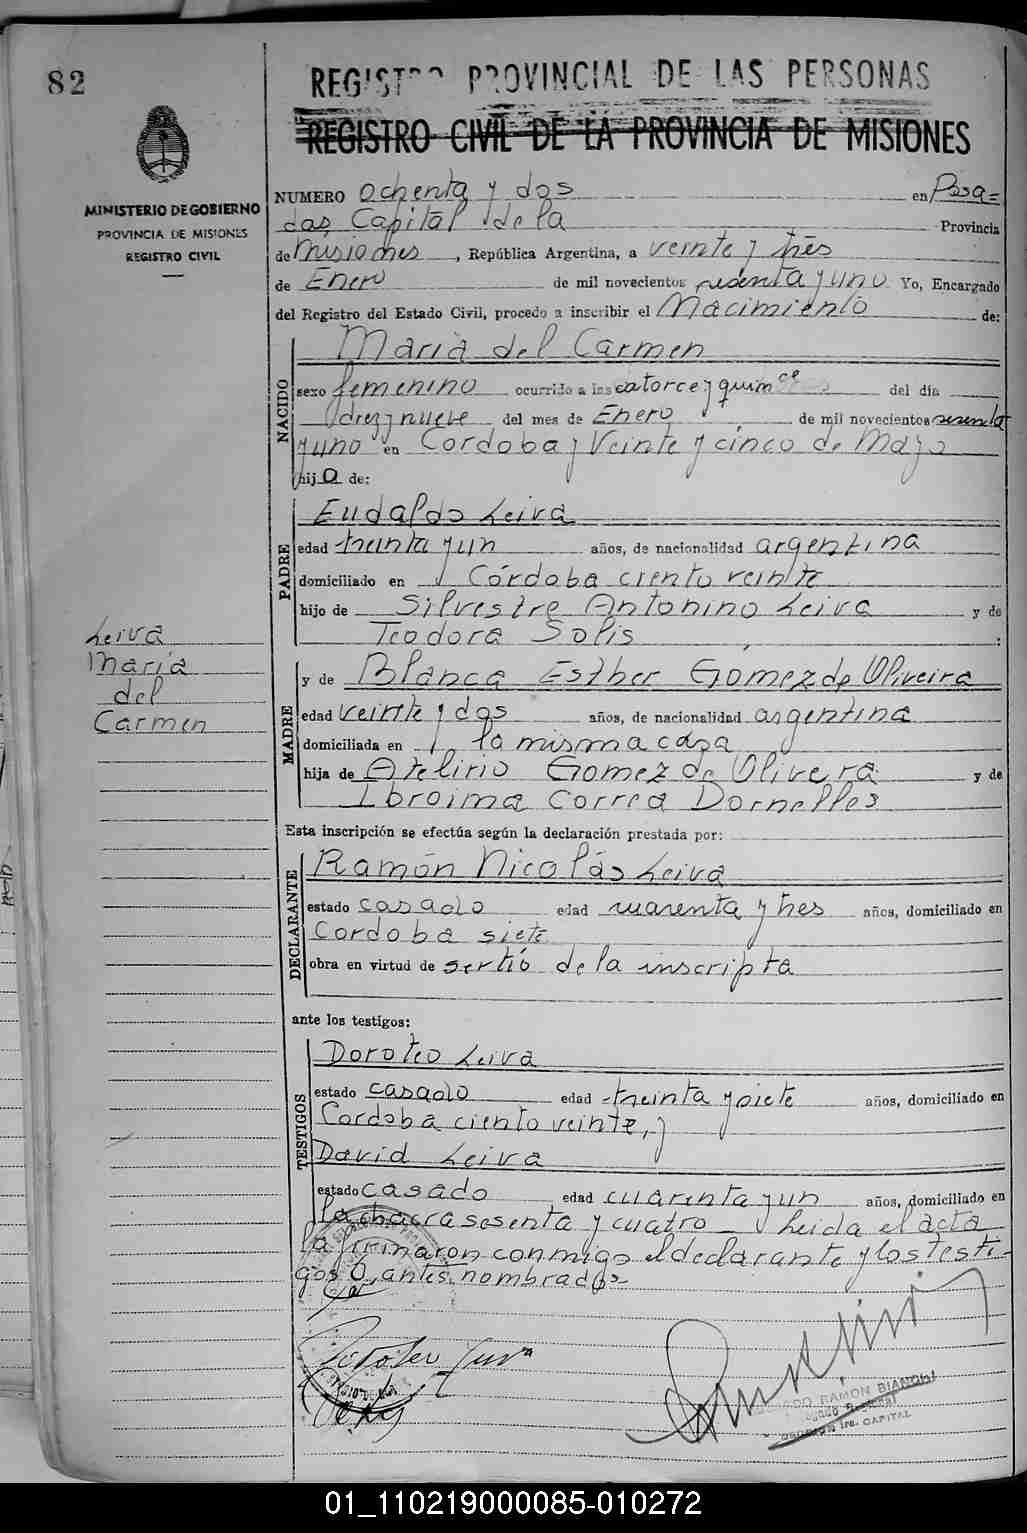 82
REGISTRO PROVINCIAL DE LAS PERSONAS
REGISTRO CIVIL DE LA PROVINCIA DE MISIONES
MINISTERIO DE GOBIERNO
PROVINCIA DE MISIONES
REGISTRO CIVIL
NUMERO ochenta y dos en Posa=
das, Capital de la Provincia
de Misiones, República Argentina, a veinte y tres
de Enero de mil novecientos sesenta y uno Yo, Encargado
del Registro del Estado Civil, procedo a inscribir el Nacimiento de:
NACIDO
María del Carmen
sexo femenino ocurrido a las catorce y quince del día
diez y nueve del mes de Enero de mil novecientos sesenta
y uno en Cordoba y Veinte y cinco de Mayo
hija de:
PADRE
Eudaldo Leiva
edad treinta y un años, de nacionalidad argentina
domiciliado en Córdoba ciento veinte
hijo de Silvestre Antonino Leiva y de
Teodora Solis :
Leiva
María
del
Carmen
MADRE
y de Blanca Esther Gómez de Oliveira
edad veinte y dos años, de nacionalidad argentina
domiciliada en la misma casa
hija de Atelirio Gomez de Olivera y de
Ibroima Correa Dornelles
Esta inscripción se efectúa según la declaración prestada por:
DECLARANTE
Ramón Nicolás Leiva
estado casado edad cuarenta y tres años, domiciliado en
Cordoba siete
obra en virtud de ser tío de la inscripta
ante los testigos:
TESTIGOS
Doroteo Leiva
estado casado edad treinta y siete años, domiciliado en
Cordoba ciento veinte, y
David Leiva
estado casado edad cuarenta y un años, domiciliado en
la chacra sesenta y cuatro Leida el acta
la firmaron conmigo el declarante y los testi-
gos antes nombrados
RAMON BIANCHI
SECCION 1ra. CAPITAL
01_110219000085-010272